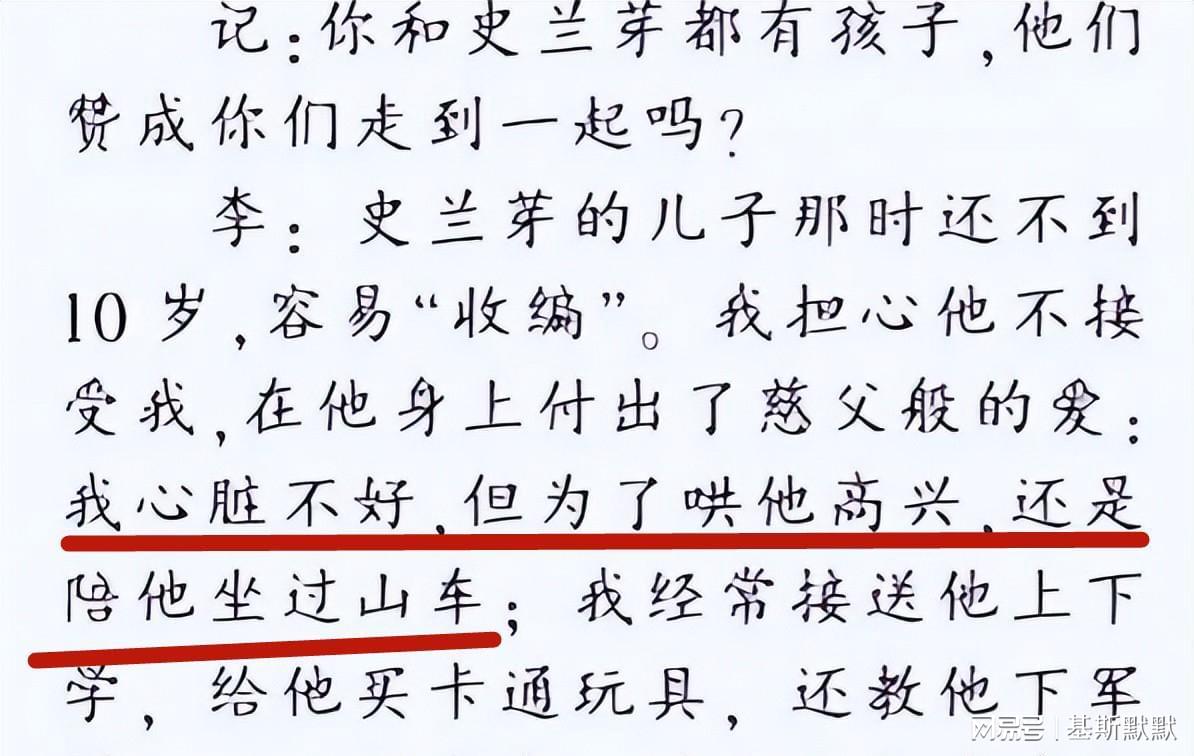 记:你和史兰芽都有孩子,他们
赞成你们走到一起吗?
李:史兰芽的儿子那时还不到
10岁,容易“收编”。我担心他不接
受我,在他身上付出了慈父般的爱:
我心脏不好,但为了哄他高兴,还是
陪他坐过山车;我经常接送他上下
学,给他买卡通玩具,还教他下军
网易号 | 基斯默默